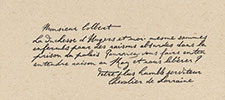 Monsieur Colbert
La Duchesse d'Angers et moi-même sommes
enfermés pour des raisons absurdes dans la
prison du palais. Pourriez-vous faire enten
entendre raison au Roy et nous libérer ?
Votre plus humble serviteur
Chevalier de Lorraine